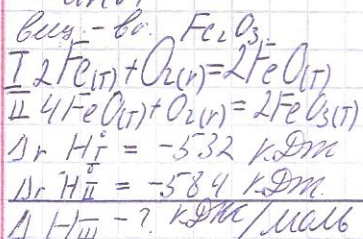 вещ-во. Fe₂O₃.
I 2Fe(т)+O₂(г)=2FeO(т)
II 4FeO(т)+O₂(г)=2Fe₂O₃(т)
ΔrH°I = -532 кДж
ΔrH°II = -584 кДж.
ΔHIII -? кДж/моль